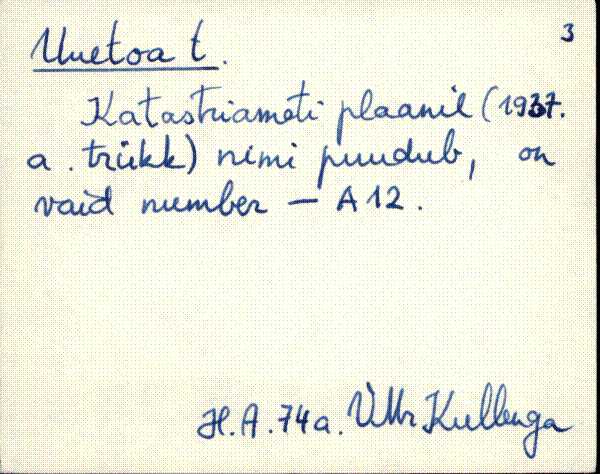 3
Uuetoa t.
Katastriameti plaanil (1937.
a. trükk) nimi puudub, on
vaid number – A 12.
H.A. 74 a. Kullenga